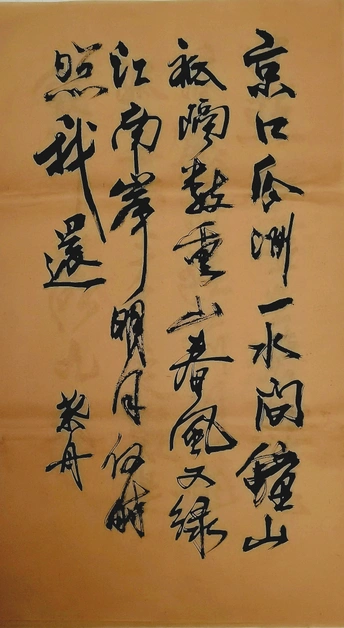 京口瓜洲一水間鐘山
祇隔數重山春風又綠
江南岸明月何時
照我還
黎丹